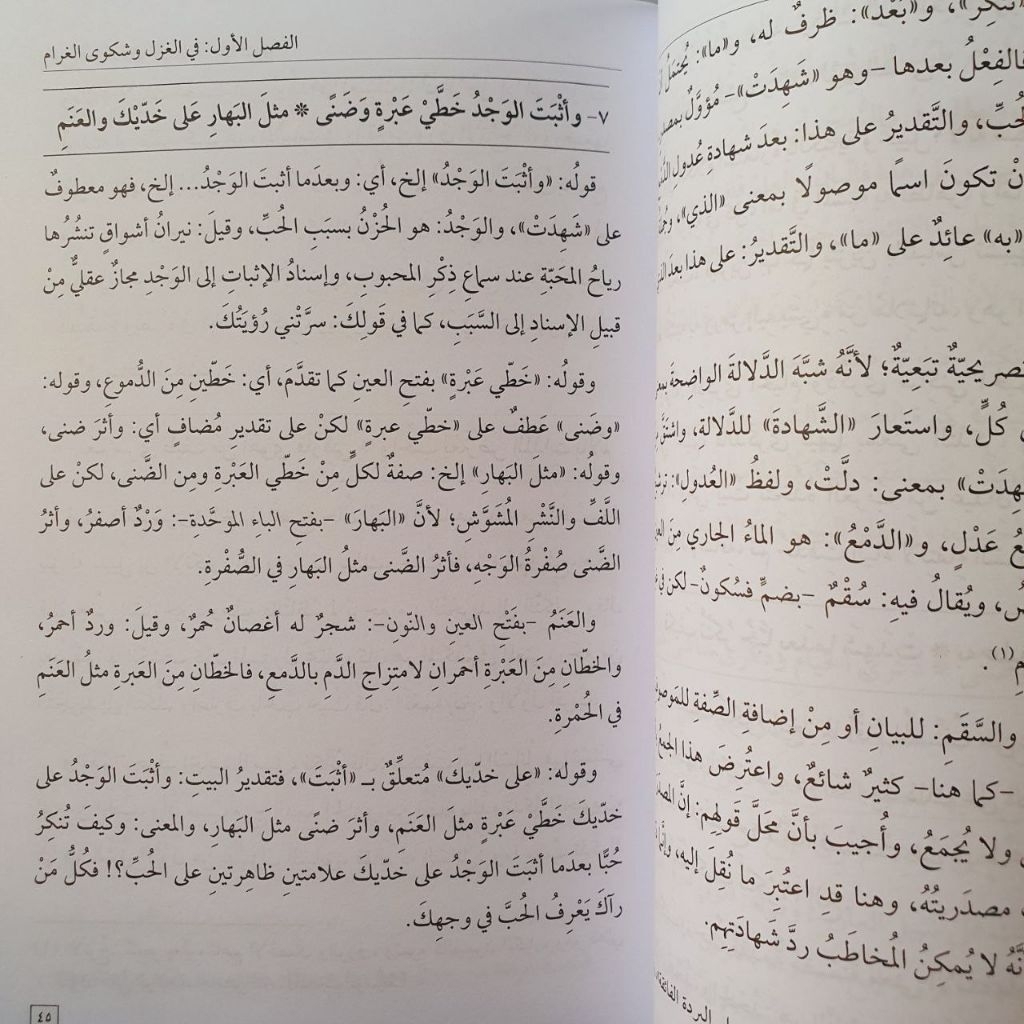 الفصل الأول: في الغزل وشكوى الغرام
٧- وأثْبَتَ الوَجْدُ خَطَّيْ عَبْرةٍ وَضَنًى * مثلَ البَهارِ عَلى خَدّيْكَ والعَنَمِ
قولُه: «وأثْبَتَ الوَجْدُ» إلخ، أي: وبعدَما أثبتَ الوَجْدُ... إلخ، فهو معطوفٌ
على «شَهِدَتْ»، والوَجْدُ: هو الحُزْنُ بسبَبِ الحُبِّ، وقيلَ: نيرانُ أشواقٍ تنشُرُها
رياحُ المحَبّةِ عند سماعِ ذِكْرِ المحبوبِ، وإسنادُ الإثباتِ إلى الوَجْدِ مجازٌ عقليٌّ مِنْ
قبيلِ الإسنادِ إلى السَّبَبِ، كما في قَولِكَ: سرَّتْني رُؤيَتُكَ.
وقولُه: «خَطَّي عَبْرةٍ» بفتحِ العينِ كما تقدَّمَ، أي: خَطّينِ مِنَ الدُّموعِ، وقوله:
«وضَنى» عَطفٌ على «خطّي عبرةٍ» لكنْ على تقديرِ مُضافٍ أي: وأثرَ ضنى،
وقولُه: «مثلَ البَهارِ» إلخ: صفةٌ لكلٍّ مِنْ خَطّي العَبْرةِ ومِن الضَّنى، لكنْ على
اللَّفِّ والنَّشْرِ المُشَوَّشِ؛ لأنَّ «البَهارَ» –بفتحِ الباءِ الموحَّدة–: وَرْدٌ أصفرُ، وأثرُ
الضَّنى صُفْرةُ الوَجْهِ، فأثرُ الضَّنى مثلُ البَهارِ في الصُّفْرةِ.
والعَنَمُ –بفَتْحِ العينِ والنّونِ–: شجرٌ له أغصانٌ حُمرٌ، وقيلَ: وردٌ أحمرُ،
والخطّانِ مِنَ العَبْرةِ أحمَرانِ لامتِزاجِ الدَّمِ بالدَّمعِ، فالخطّانِ مِنَ العَبرةِ مثلُ العَنَمِ
في الحُمْرةِ.
وقوله: «على خدّيكَ» مُتعلِّقٌ بـ «أثبَتَ»، فتقديرُ البيتِ: وأثْبَتَ الوَجْدُ على
خدّيكَ خَطَّيْ عَبْرةٍ مثلَ العَنَمِ، وأثرَ ضنًى مثلَ البَهارِ، والمعنى: وكيفَ تُنكِرُ
حُبًّا بعدَما أثبَتَ الوَجْدُ على خَدّيكَ علامتينِ ظاهِرتينِ على الحُبِّ؟! فكُلُّ مَنْ
رآكَ يَعْرِفُ الحُبَّ في وجهِكَ.
٤٥
تُنكِرُ»، و«بَعْدَ»: ظرفٌ له، و«ما»: يُحتمَلُ
فالفِعْلُ بعدها –وهو «شَهِدَتْ»– مُؤوَّلٌ
الحُبِّ، والتَّقديرُ على هذا: بعدَ شهادةِ عُدولِ
نْ تكونَ اسمًا موصولًا بمعنى «الذي»،
«به» عائِدٌ على «ما»، والتَّقديرُ: على هذا بعدَ
تصريحيّةٌ تبَعيّةٌ؛ لأنَّهُ شبَّهَ الدَّلالةَ الواضِحةَ
كُلٍّ، واستَعارَ «الشَّهادةَ» للدَّلالةِ، واشتَقَّ
شهِدَتْ» بمعنى: دلَّتْ، ولفظُ «العُدولِ»:
عُ عَدْلٍ، و«الدَّمْعُ»: هو الماءُ الجاري مِنَ
ويُقالُ فيهِ: سُقْمٌ –بضمٍّ فسُكونٌ– لكن في
مِ(١).
والسَّقَمِ: للبيانِ أو مِنْ إضافةِ الصِّفةِ
–كما هنا– كثيرٌ شائعٌ، واعتُرِضَ هذا الجمعُ
ولا يُجمَعُ، وأُجيبَ بأنَّ محَلَّ قَولِهِم: إنَّ
مصدَريتُهُ، وهنا قدِ اعتُبِرَ ما نُقِلَ إليه،
نَّهُ لا يُمكِنُ المُخاطَبُ ردَّ شهادَتِهِم.
البردة